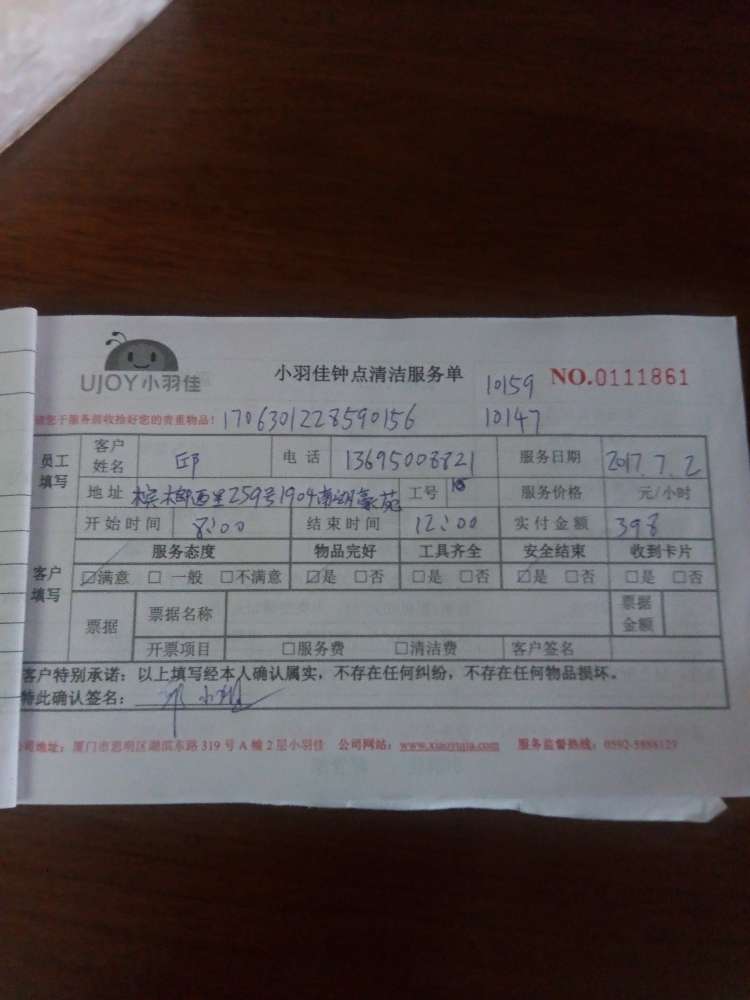 UJOY小羽佳
小羽佳钟点清洁服务单
10159
NO.0111861
请您于服务前收拾好您的贵重物品!
1706301228590156
10147
员工填写 客户姓名 邱 电话 13695008821 服务日期 2017.7.2
地址 槟榔西里259号1904南湖豪苑 工号 服务价格 元/小时
开始时间 8:00 结束时间 12:00 实付金额 398
客户填写 服务态度 物品完好 工具齐全 安全结束 收到卡片
☑满意 □一般 □不满意 ☑是 □否 □是 □否 ☑是 □否 □是 □否
票据 票据名称 票据金额
开票项目 □服务费 □清洁费 客户签名
客户特别承诺:以上填写经本人确认属实,不存在任何纠纷,不存在任何物品损坏。
特此确认签名:邱小
公司地址:厦门市思明区湖滨东路319号A幢2层小羽佳 公司网站:www.xiaoyujia.com 服务监督热线: